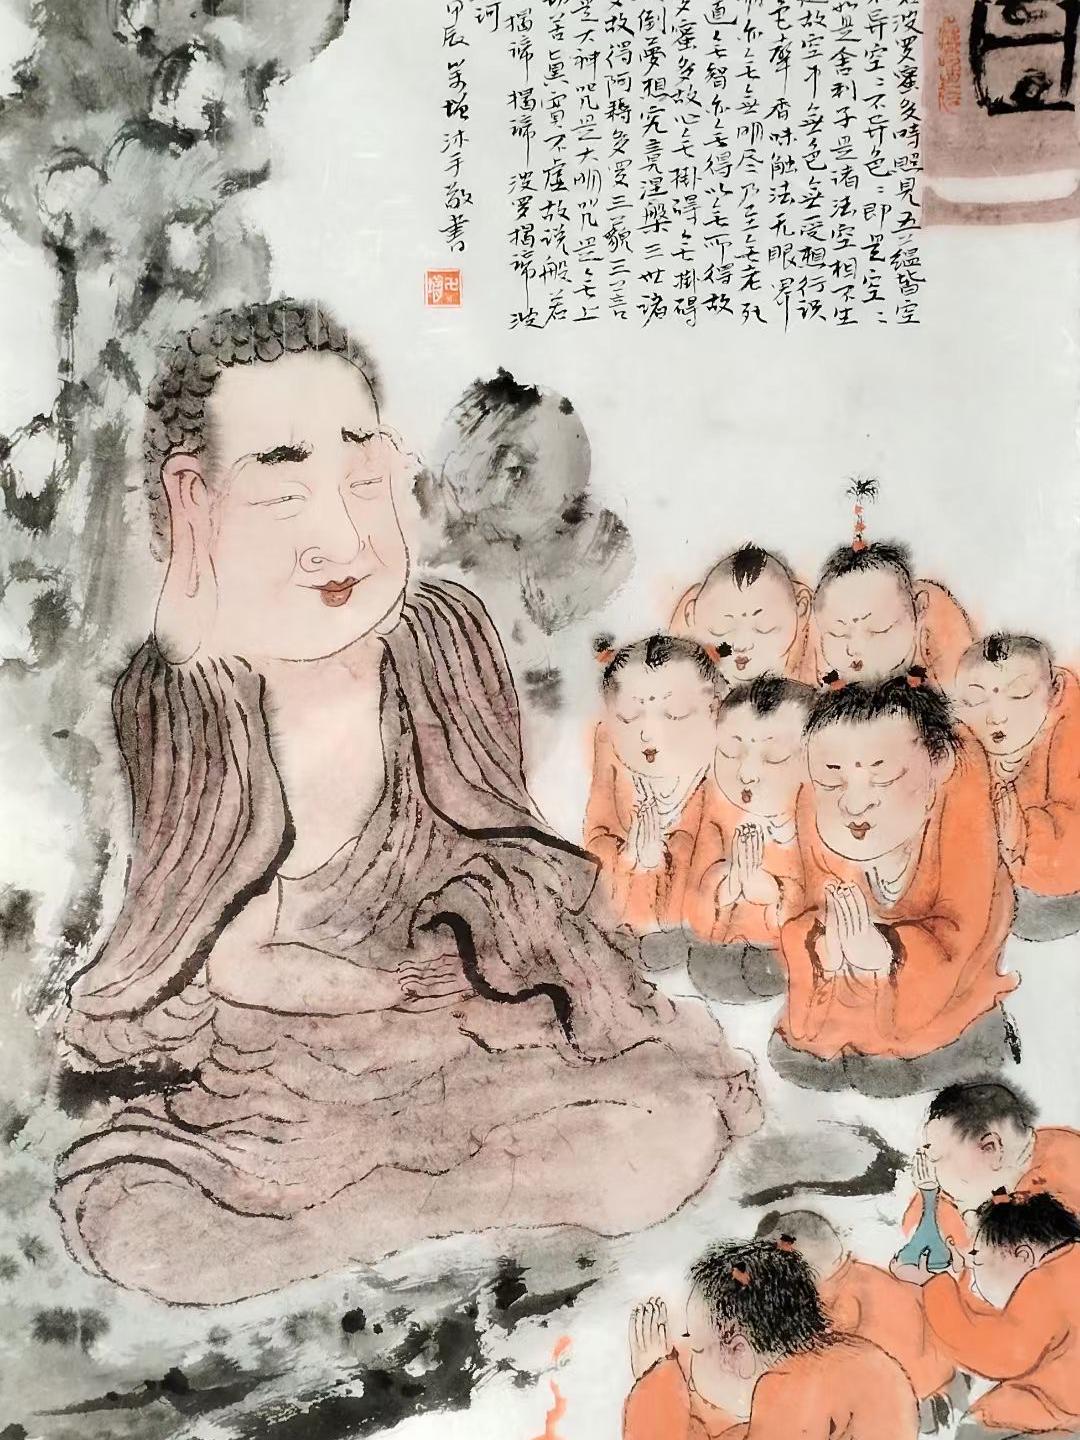 波罗蜜多時照見五蕴皆空
异空〻不异色〻即是空〻
如是舍利子是诸法空相不生
是故空中无色无受想行识
色聲香味触法无眼界
明亦无无明尽乃至无老死
道无智亦无得以无所得故
蜜多故心无掛碍无掛碍
倒夢想究竟涅槃三世诸
故得阿耨多罗三藐三菩
是大神咒是大明咒是无上
切苦真實不虚故说般若
揭谛揭谛波罗揭谛波
诃
甲辰 增沐手敬書